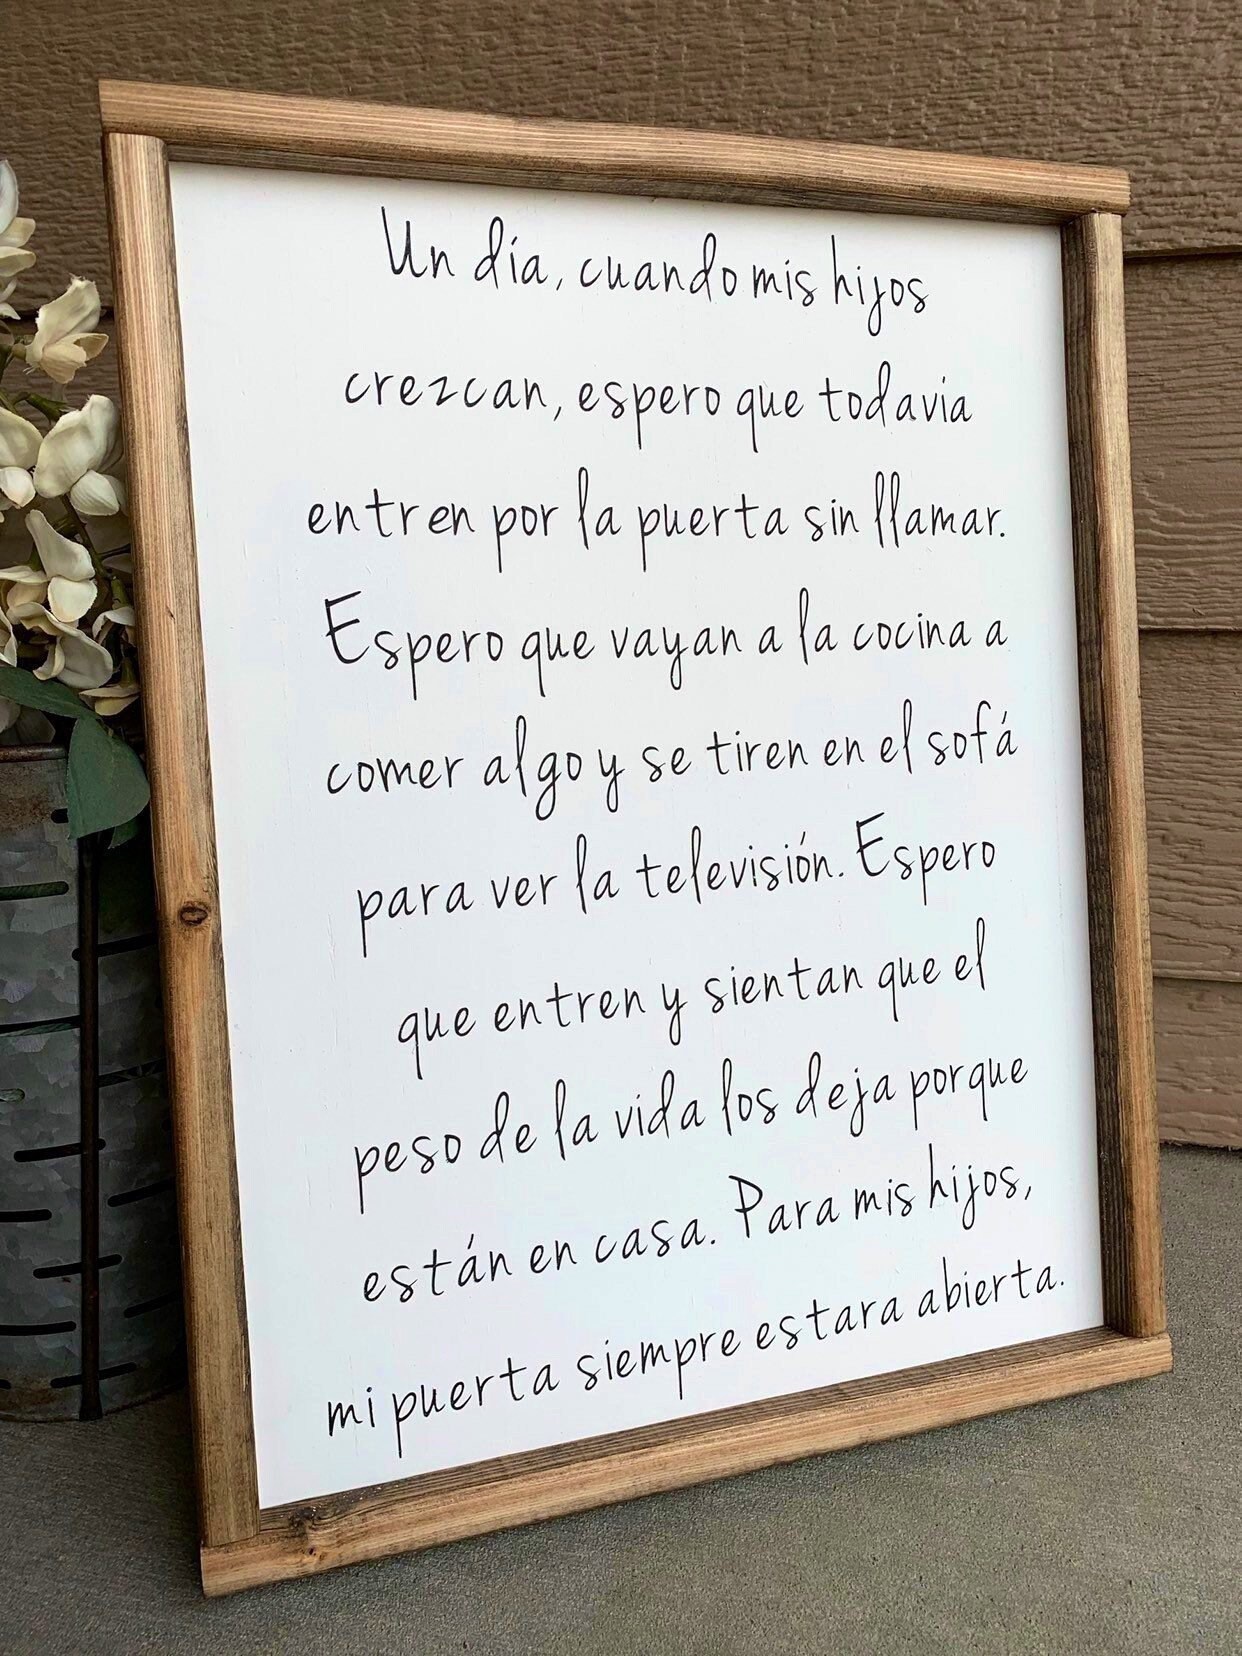 Un día, cuando mis hijos
crezcan, espero que todavia
entren por la puerta sin llamar.
Espero que vayan a la cocina a
comer algo y se tiren en el sofá
para ver la televisión. Espero
que entren y sientan que el
peso de la vida los deja porque
están en casa. Para mis hijos,
mi puerta siempre estara abierta.